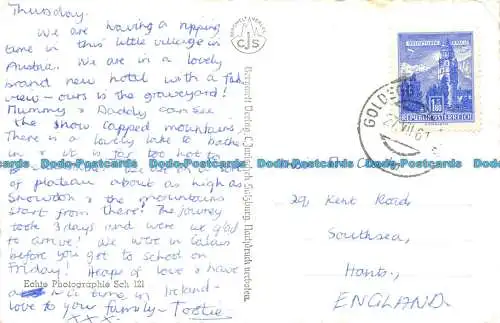 Thursday.
We are having a ripping
time in this little village in
Austria. We are in a lovely
brand new hotel with a fab
view - ours is the graveyard!
Mummy & Daddy can see
the snow capped mountains.
There is a lovely lake to bathe
in & it is far too hot to
of plateau about as high as
Snowdon & the mountains
start from there! The journey
took 3 days and were we glad
to arrive! We were in Calais
before you get to school on
Friday! Heaps of love & have
a time in Ireland -
love to your family - Tootie
xxx.
Echte Photographie Sch 121
CJS
Bergwelt Verlag C. Jurischek Salzburg, Nachdruck verboten.
REPUBLIK ÖSTERREICH
1.80
GOLDEGG
29, Kent Road
Southsea,
Hants,
ENGLAND.
Dodo-Postcards Dodo-Postcards Dodo-Postcards Dodo-Postcards